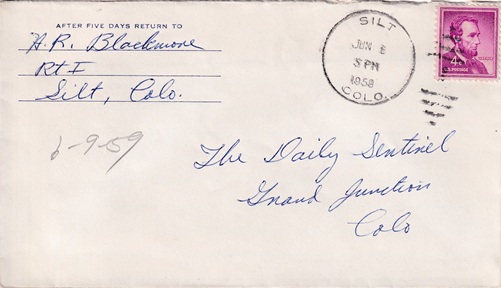 AFTER FIVE DAYS RETURN TO
H. R. Blackmore
Rt I
Silt, Colo.
SILT
JUN 8
3 PM
1958
COLO.
4¢
U.S. POSTAGE
6-9-59
The Daily Sentinel
Grand Junction
Colo